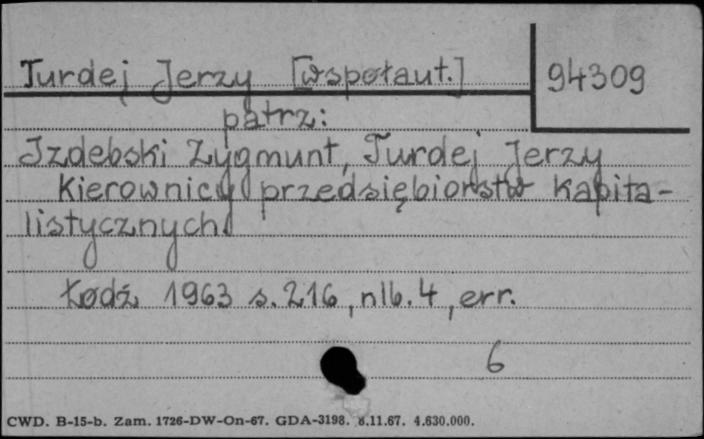 Turdej Jerzy [współaut.]
94309
patrz:
Izdebski Zygmunt, Turdej Jerzy
Kierownicy przedsiębiorstw kapita-
listycznych
Łódź 1963 s. 216, nlb. 4, err.
6
CWD. B-15-b. Zam. 1726-DW-On-67. GDA-3198. 8.11.67. 4.630.000.